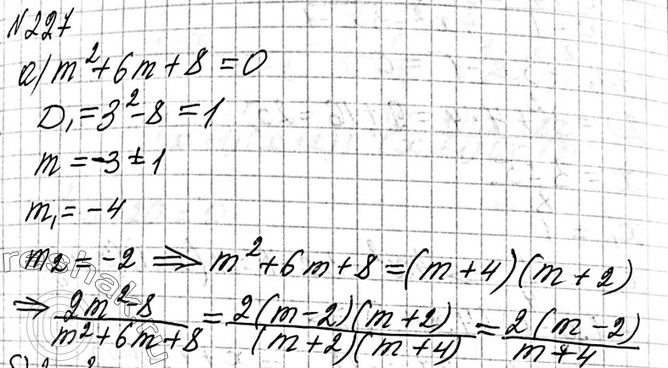 №227
а) m²+6m+8=0
D₁=3²-8=1
m=-3±1
m₁=-4
m₂=-2 ⇒ m²+6m+8=(m+4)(m+2)
⇒ (2m²-8)/(m²+6m+8) = (2(m-2)(m+2))/((m+2)(m+4)) = (2(m-2))/(m+4)